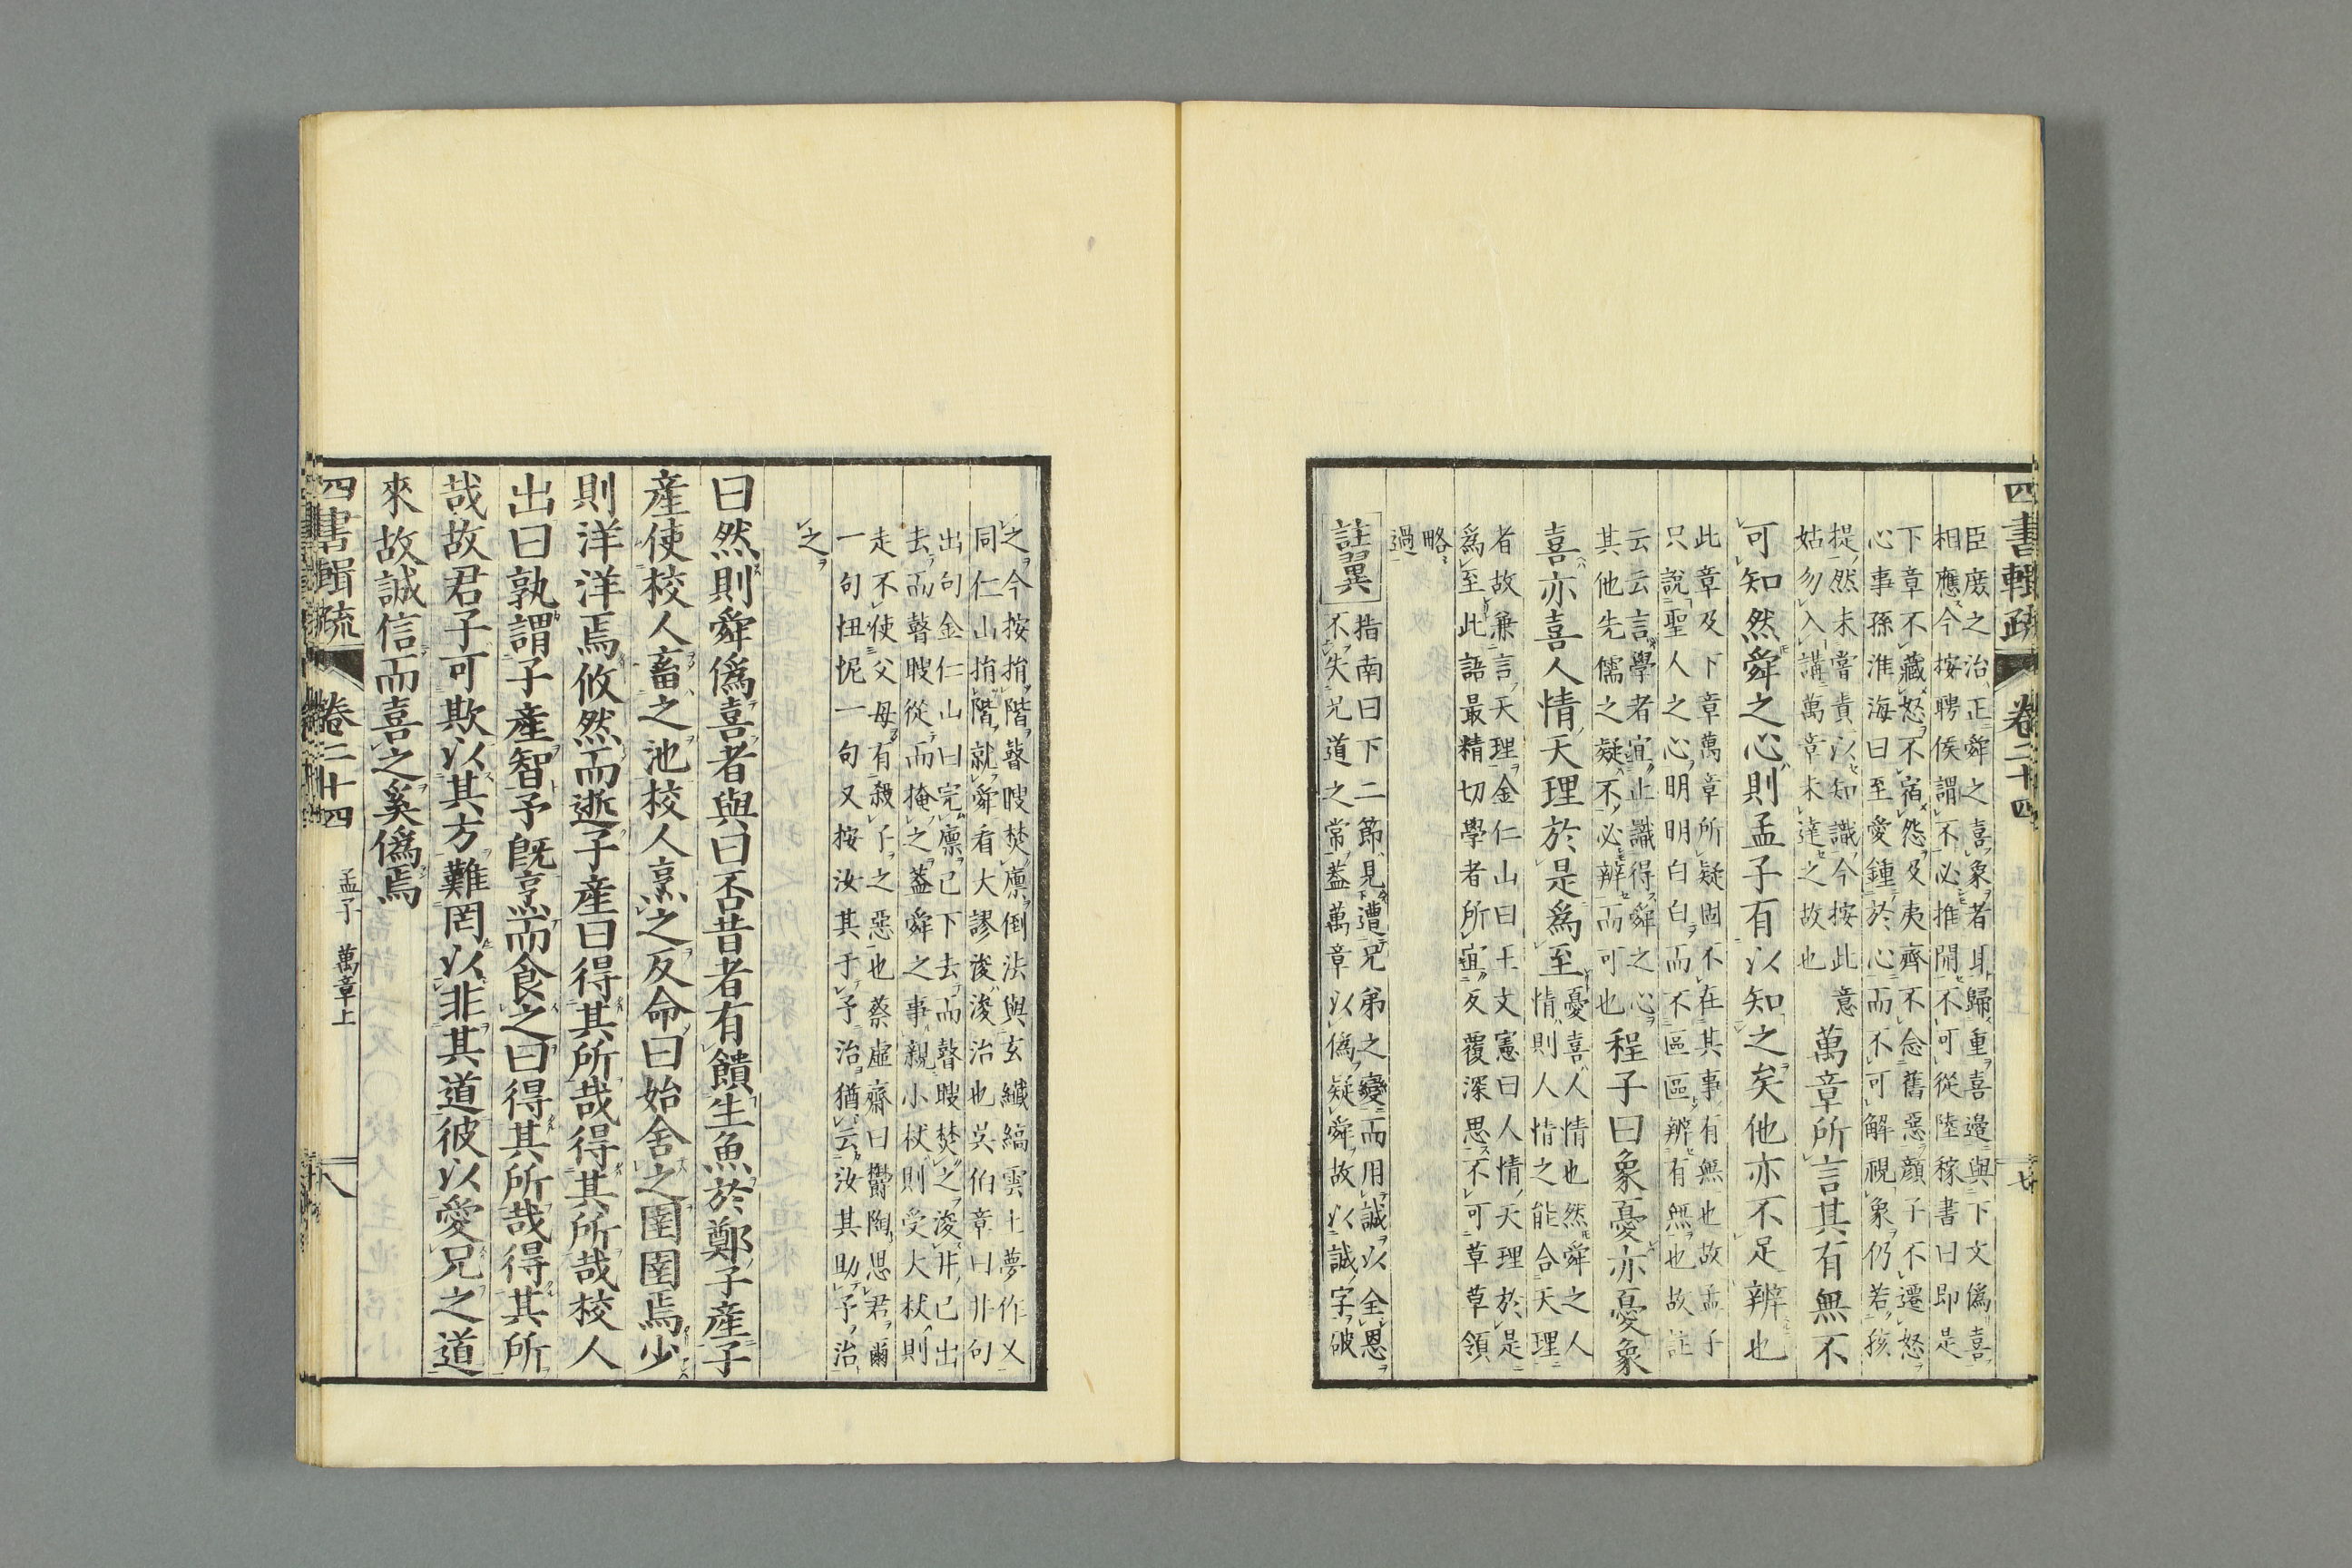 四書輯疏 卷二十四
臣庶之治正舜之喜象者耳歸重喜邊與下文僞喜
相應今按聘侯謂不必推開不可從陸稼書曰即是
下章不藏怒不宿怨及夷齊不念舊惡顔子不遷怒
心事孫淮海曰至愛鍾於心而不可解視象仍若孩
提然未嘗責以知識今按此意
姑勿入講萬章未達之故也
萬章所言其有無不
可知然舜之心則孟子有以知之矣他亦不足辨也
此章及下章萬章所疑固不在其事有無也故孟子
只說聖人之心明明白白而不區區辨有無也故註
云云言學者宜止識得舜之心
其他先儒之疑不必辨而可也
程子曰象憂亦憂象
喜亦喜人情天理於是爲至
憂喜人情也然舜之人
情則人情之能合天理
者故兼言天理金仁山曰王文憲曰人情天理於是
爲至此語最精切學者所宜反覆深思不可草草領
略
過
註翼
指南曰下二節見遭兄弟之變而用誠以全恩
不失兄道之常蓋萬章以僞疑舜故以誠字破
之今按捐階瞽瞍焚廪倒法與玄纖縞雲土夢作乂
同仁山捐階就舜看大謬浚浚治也吳伯章曰井句
出句金仁山曰完廪已下去而瞽瞍焚之浚井已出
去而瞽瞍從而掩之蓋舜之事親小杖則受大杖則
走不使父母有殺子之惡也蔡虛齋曰鬱陶思君爾
一句忸怩一句又按汝其于予治猶云汝其助予治
之
曰然則舜僞喜者與曰否昔者有饋生魚於鄭子產子
產使校人畜之池校人烹之反命曰始舍之圉圉焉少
則洋洋焉攸然而逝子產曰得其所哉得其所哉校人
出曰孰謂子產智予既烹而食之曰得其所哉得其所
哉故君子可欺以其方難罔以非其道彼以愛兄之道
來故誠信而喜之奚僞焉
四書輯疏 卷二十四 孟子 萬章上 十八